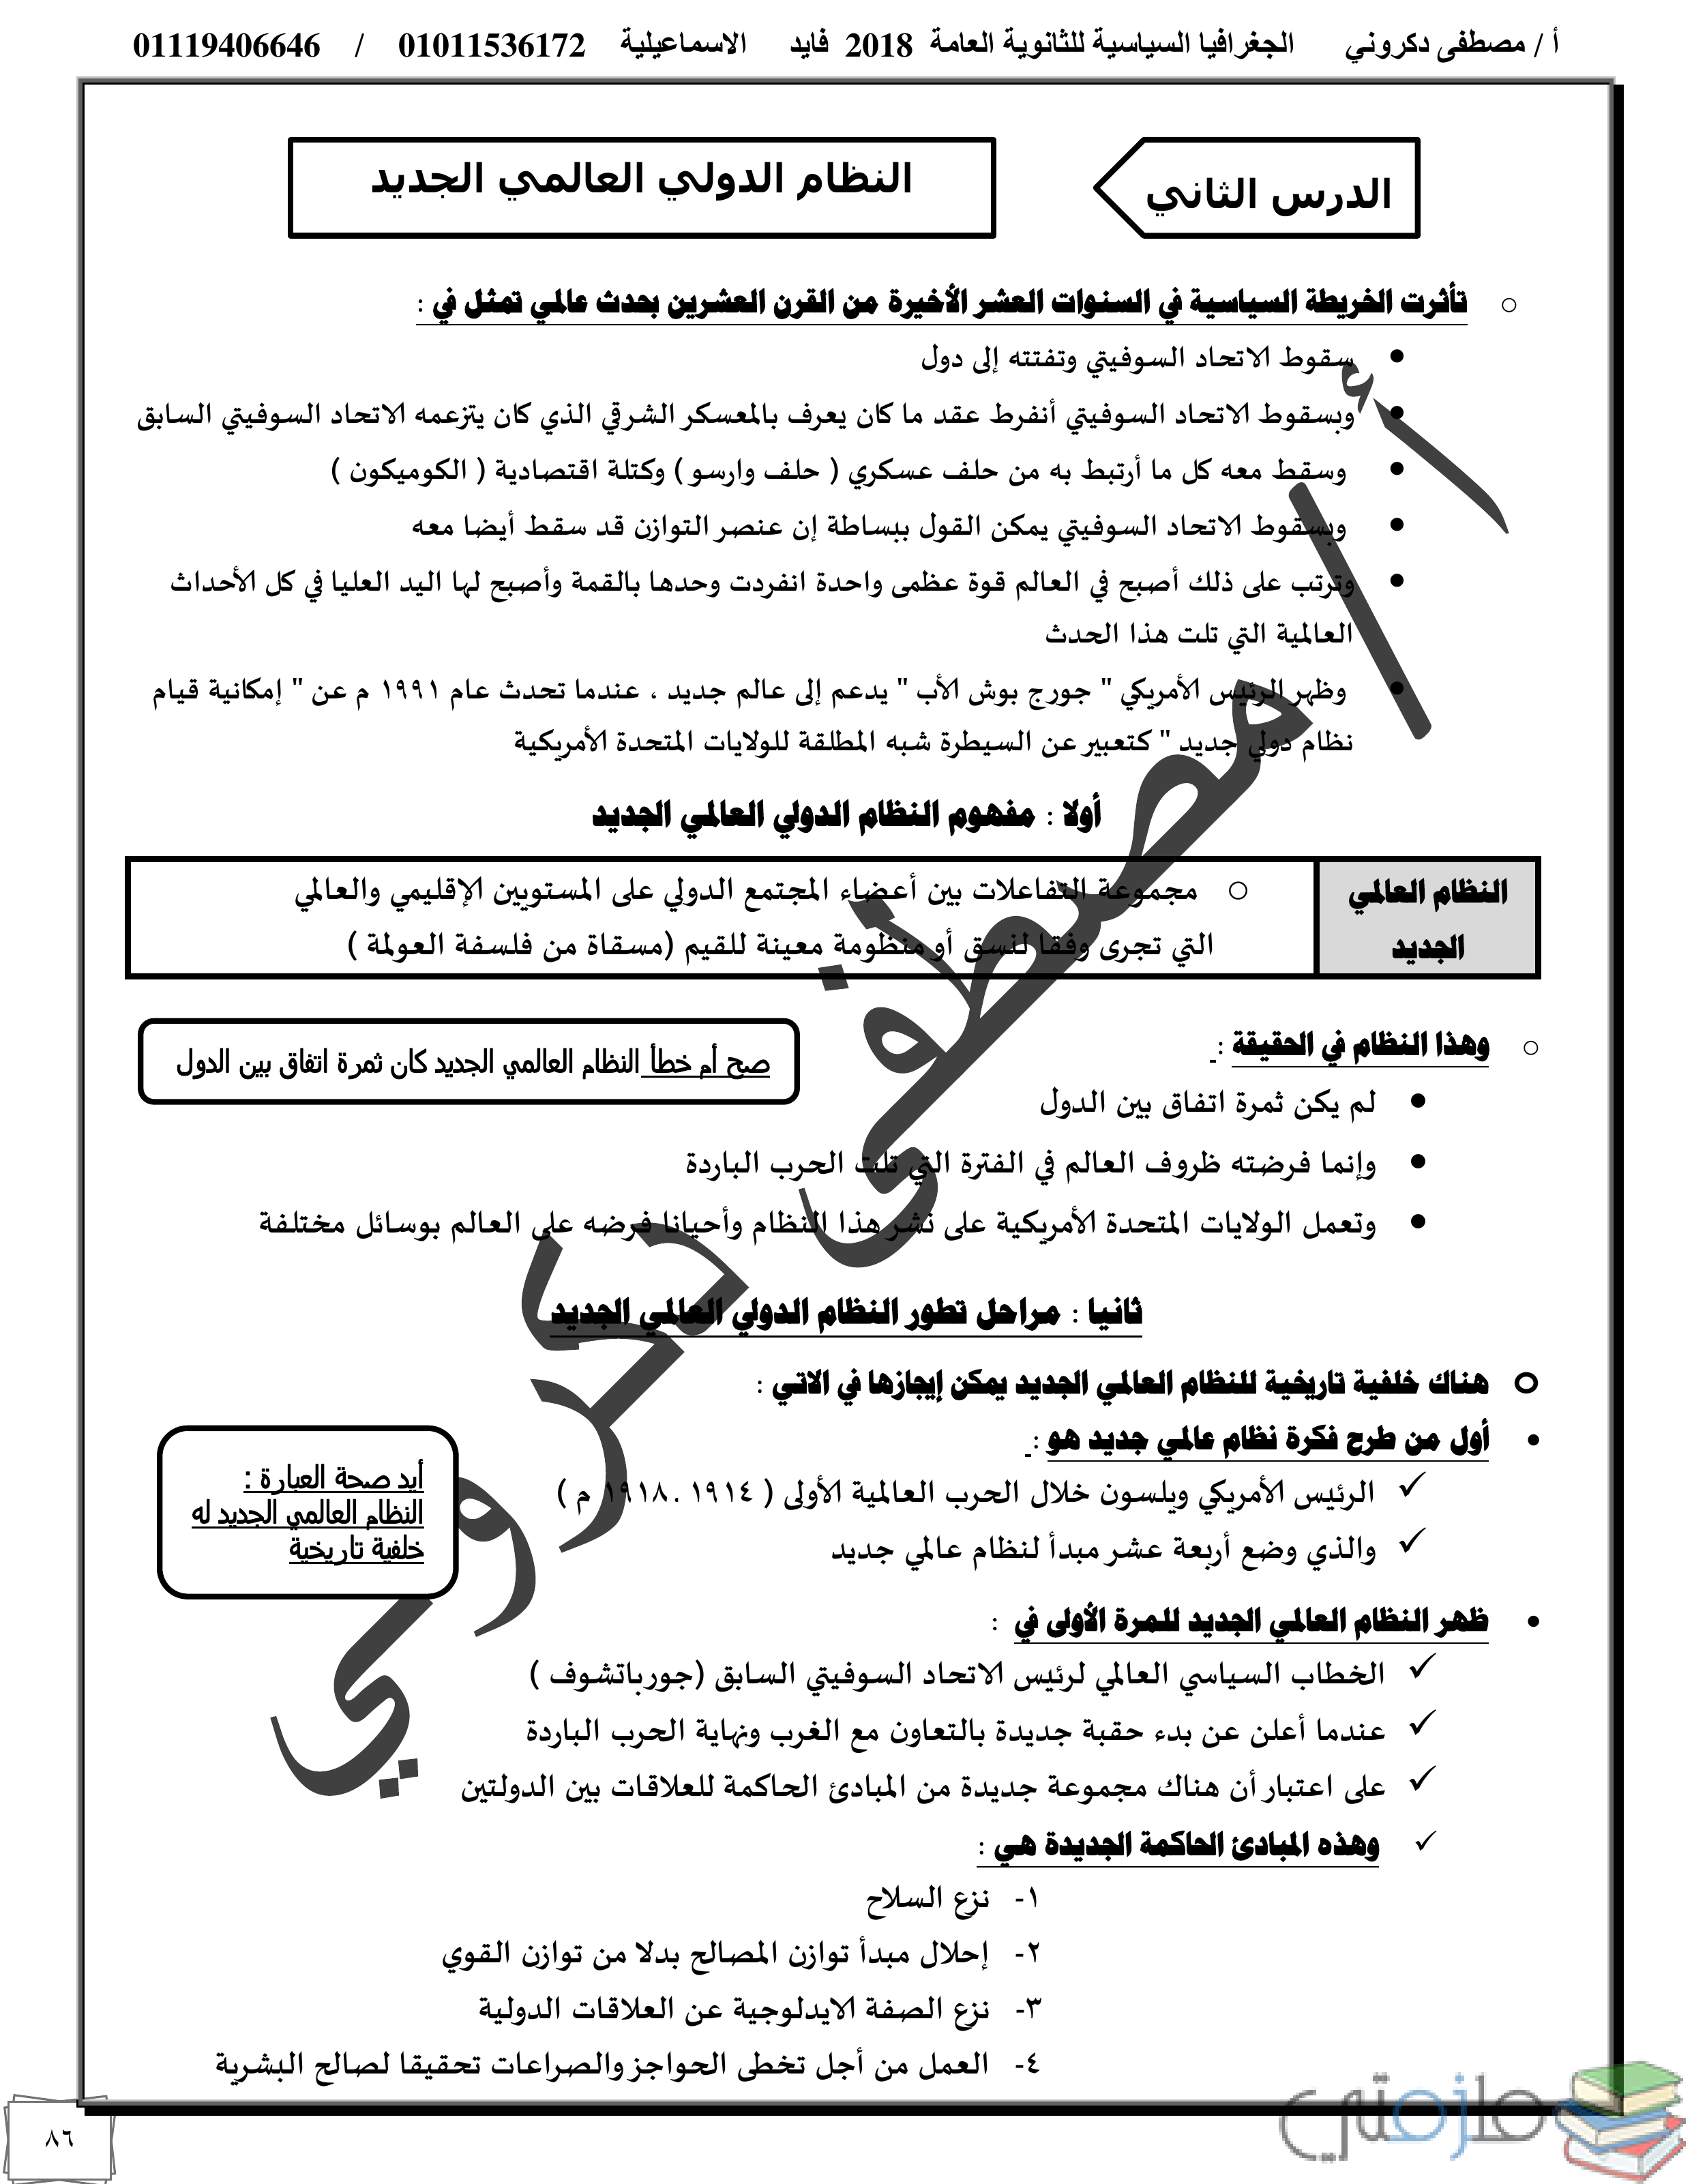 أ / مصطفى دكروني الجغرافيا السياسية للثانوية العامة 2018 فايد الاسماعيلية 01011536172 / 01119406646
الدرس الثاني
النظام الدولي العالمي الجديد
○ تأثرت الخريطة السياسية في السنوات العشر الأخيرة من القرن العشرين بحدث عالمي تمثل في :
• سقوط الاتحاد السوفيتي وتفتته إلى دول
• وبسقوط الاتحاد السوفيتي أنفرط عقد ما كان يعرف بالمعسكر الشرقي الذي كان يتزعمه الاتحاد السوفيتي السابق
• وسقط معه كل ما أرتبط به من حلف عسكري ( حلف وارسو ) وكتلة اقتصادية ( الكوميكون )
• وبسقوط الاتحاد السوفيتي يمكن القول ببساطة إن عنصر التوازن قد سقط أيضا معه
• وترتب على ذلك أصبح في العالم قوة عظمى واحدة انفردت وحدها بالقمة وأصبح لها اليد العليا في كل الأحداث
العالمية التي تلت هذا الحدث
• وظهر الرئيس الأمريكي " جورج بوش الأب " يدعم إلى عالم جديد ، عندما تحدث عام ١٩٩١ م عن " إمكانية قيام
نظام دولي جديد " كتعبير عن السيطرة شبه المطلقة للولايات المتحدة الأمريكية
أولا : مفهوم النظام الدولي العالمي الجديد
النظام العالمي
الجديد
○ مجموعة التفاعلات بين أعضاء المجتمع الدولي على المستويين الإقليمي والعالمي
التي تجرى وفقا لنسق أو منظومة معينة للقيم (مسقاة من فلسفة العولمة )
○ وهذا النظام في الحقيقة :
صح أم خطأ النظام العالمي الجديد كان ثمرة اتفاق بين الدول
• لم يكن ثمرة اتفاق بين الدول
• وإنما فرضته ظروف العالم في الفترة التي تلت الحرب الباردة
• وتعمل الولايات المتحدة الأمريكية على نشر هذا النظام وأحيانا فرضه على العالم بوسائل مختلفة
ثانيا : مراحل تطور النظام الدولي العالمي الجديد
○ هناك خلفية تاريخية للنظام العالمي الجديد يمكن إيجازها في الاتي :
• أول من طرح فكرة نظام عالمي جديد هو :
✓ الرئيس الأمريكي ويلسون خلال الحرب العالمية الأولى ( ١٩١٤ . ١٩١٨ م )
✓ والذي وضع أربعة عشر مبدأ لنظام عالمي جديد
أيد صحة العبارة :
النظام العالمي الجديد له
خلفية تاريخية
• ظهر النظام العالمي الجديد للمرة الأولى في :
✓ الخطاب السياسي العالمي لرئيس الاتحاد السوفيتي السابق (جورباتشوف )
✓ عندما أعلن عن بدء حقبة جديدة بالتعاون مع الغرب ونهاية الحرب الباردة
✓ على اعتبار أن هناك مجموعة جديدة من المبادئ الحاكمة للعلاقات بين الدولتين
✓ وهذه المبادئ الحاكمة الجديدة هي :
١- نزع السلاح
٢- إحلال مبدأ توازن المصالح بدلا من توازن القوي
٣- نزع الصفة الايدلوجية عن العلاقات الدولية
٤- العمل من أجل تخطى الحواجز والصراعات تحقيقا لصالح البشرية
أ / مصطفى دكروني
ملزمتي
٨٦